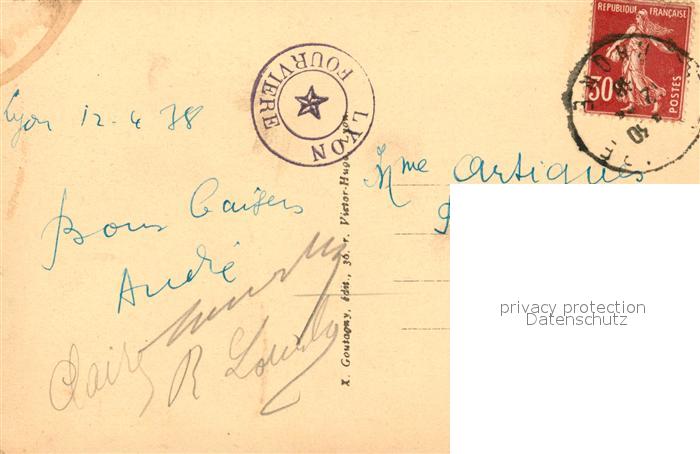 REPUBLIQUE FRANÇAISE
30
POSTES
RHONE
LYON
FOURVIERE
Lyon 12-4 38
Mme Artigues
Bons Baisers
André
X. Goutagny, édit., 36, r. Victor-Hugo, Lyon
privacy protection
Datenschutz